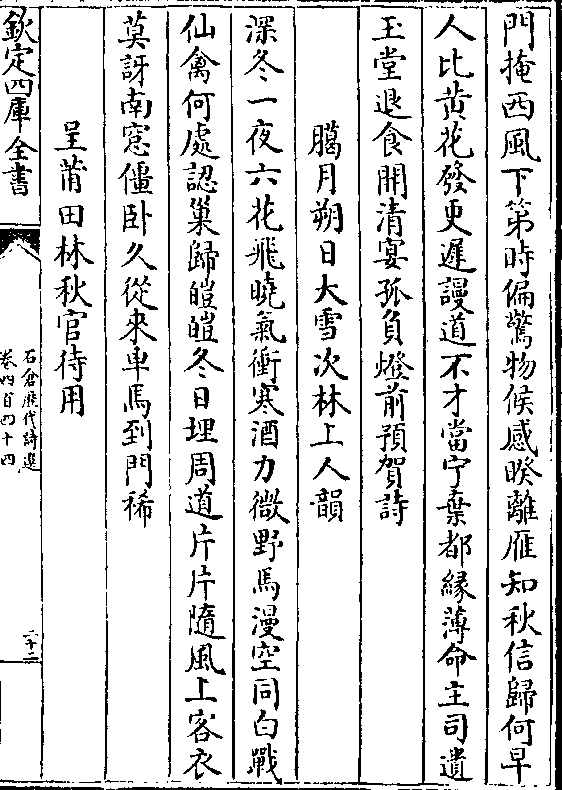 門掩西風下第時偏驚物候感暌離雁知秋信歸何早
人比黄花發更遲謾道不才當宁棄都縁薄命主司遺
玉堂退食開清宴孤負燈前預賀詩
臈月朔日大雪次林上人韻
深冬一夜六花飛曉氣衝寒酒力微野馬漫空同白戰
仙禽何處認巢歸皚皚冬日埋周道片片隨風上客衣
莫訝南窓僵卧久從來車馬到門稀
呈莆田林秋官待用
欽定四庫全書
石倉歴代詩選
卷四百四十四
二十二